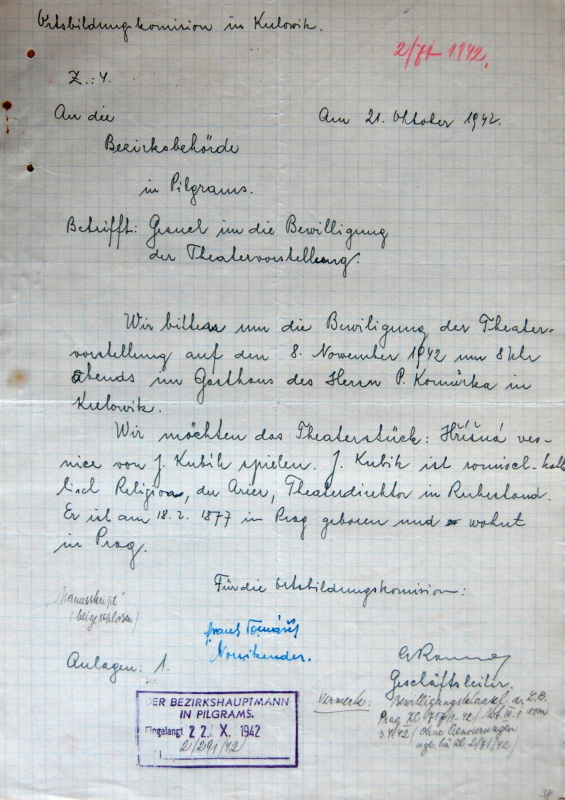 Ortsbildungskomision in Kulowik.
2/71 1942.
Z.: 4.
An die
Am 21. Oktober 1942.
Bezirksbehörde
in Pilgrams.
Betrifft: Gesuch um die Bewilligung
der Theatervorstellung.
Wir bitten um die Bewiligung der Theater-
vorstellung auf den 8. November 1942 um 8 Uhr
abends im Gasthaus des Herrn P. Komůrka in
Kulowik.
Wir möchten das Theaterstück: Hříšná ves-
nice von J. Kubík spielen. J. Kubík ist römisch-katho
lisch Religion, der Arier, Theaterdirektor in Ruhestand.
Er ist am 18. 2. 1877 in Prag geboren und wohnt
in Prag.
Für die Ortsbildungskomision:
"Manuskript"
(beigeschlossen)
Franz Tomášů
Vorsitzender.
Anlagen: 1.
Geschäftsleiter.
DER BEZIRKSHAUPTMANN
IN PILGRAMS.
Eingelangt 22. X. 1942
2/291/42
Vermerk: Bewilligungs
Prag
vom
3/4/42 / ohne Benderungen
2/71/42)
38